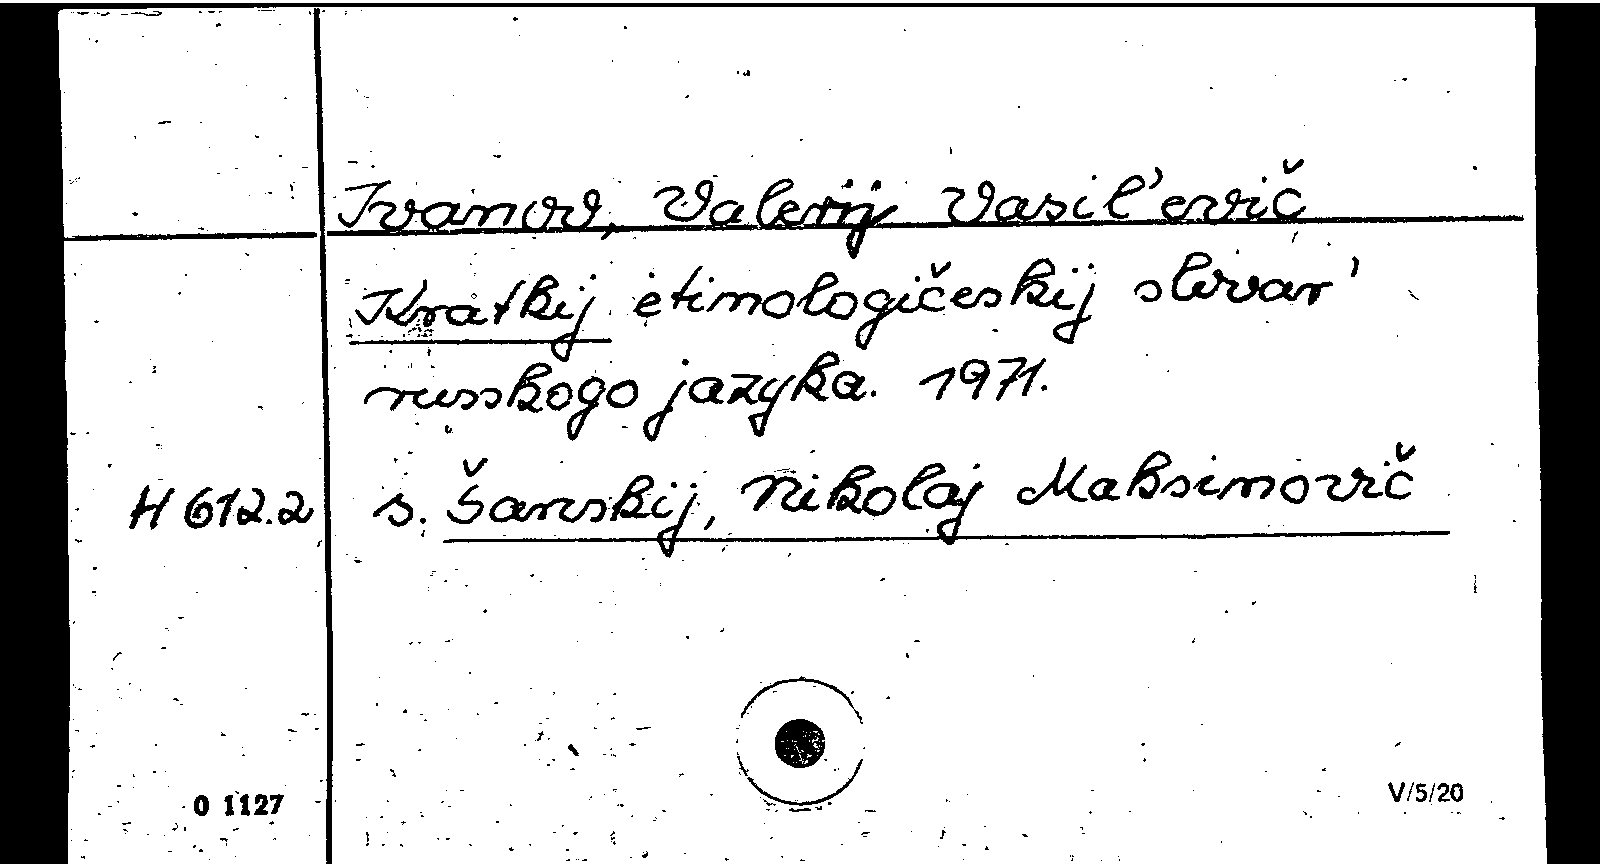 Ivanov, Valerij Vasil'evič
Kratkij ėtimologičeskij slovar'
russkogo jazyka. 1971.
H 612.2 s. Šanskij, Nikolaj Maksimovič
O 1127
V/5/20